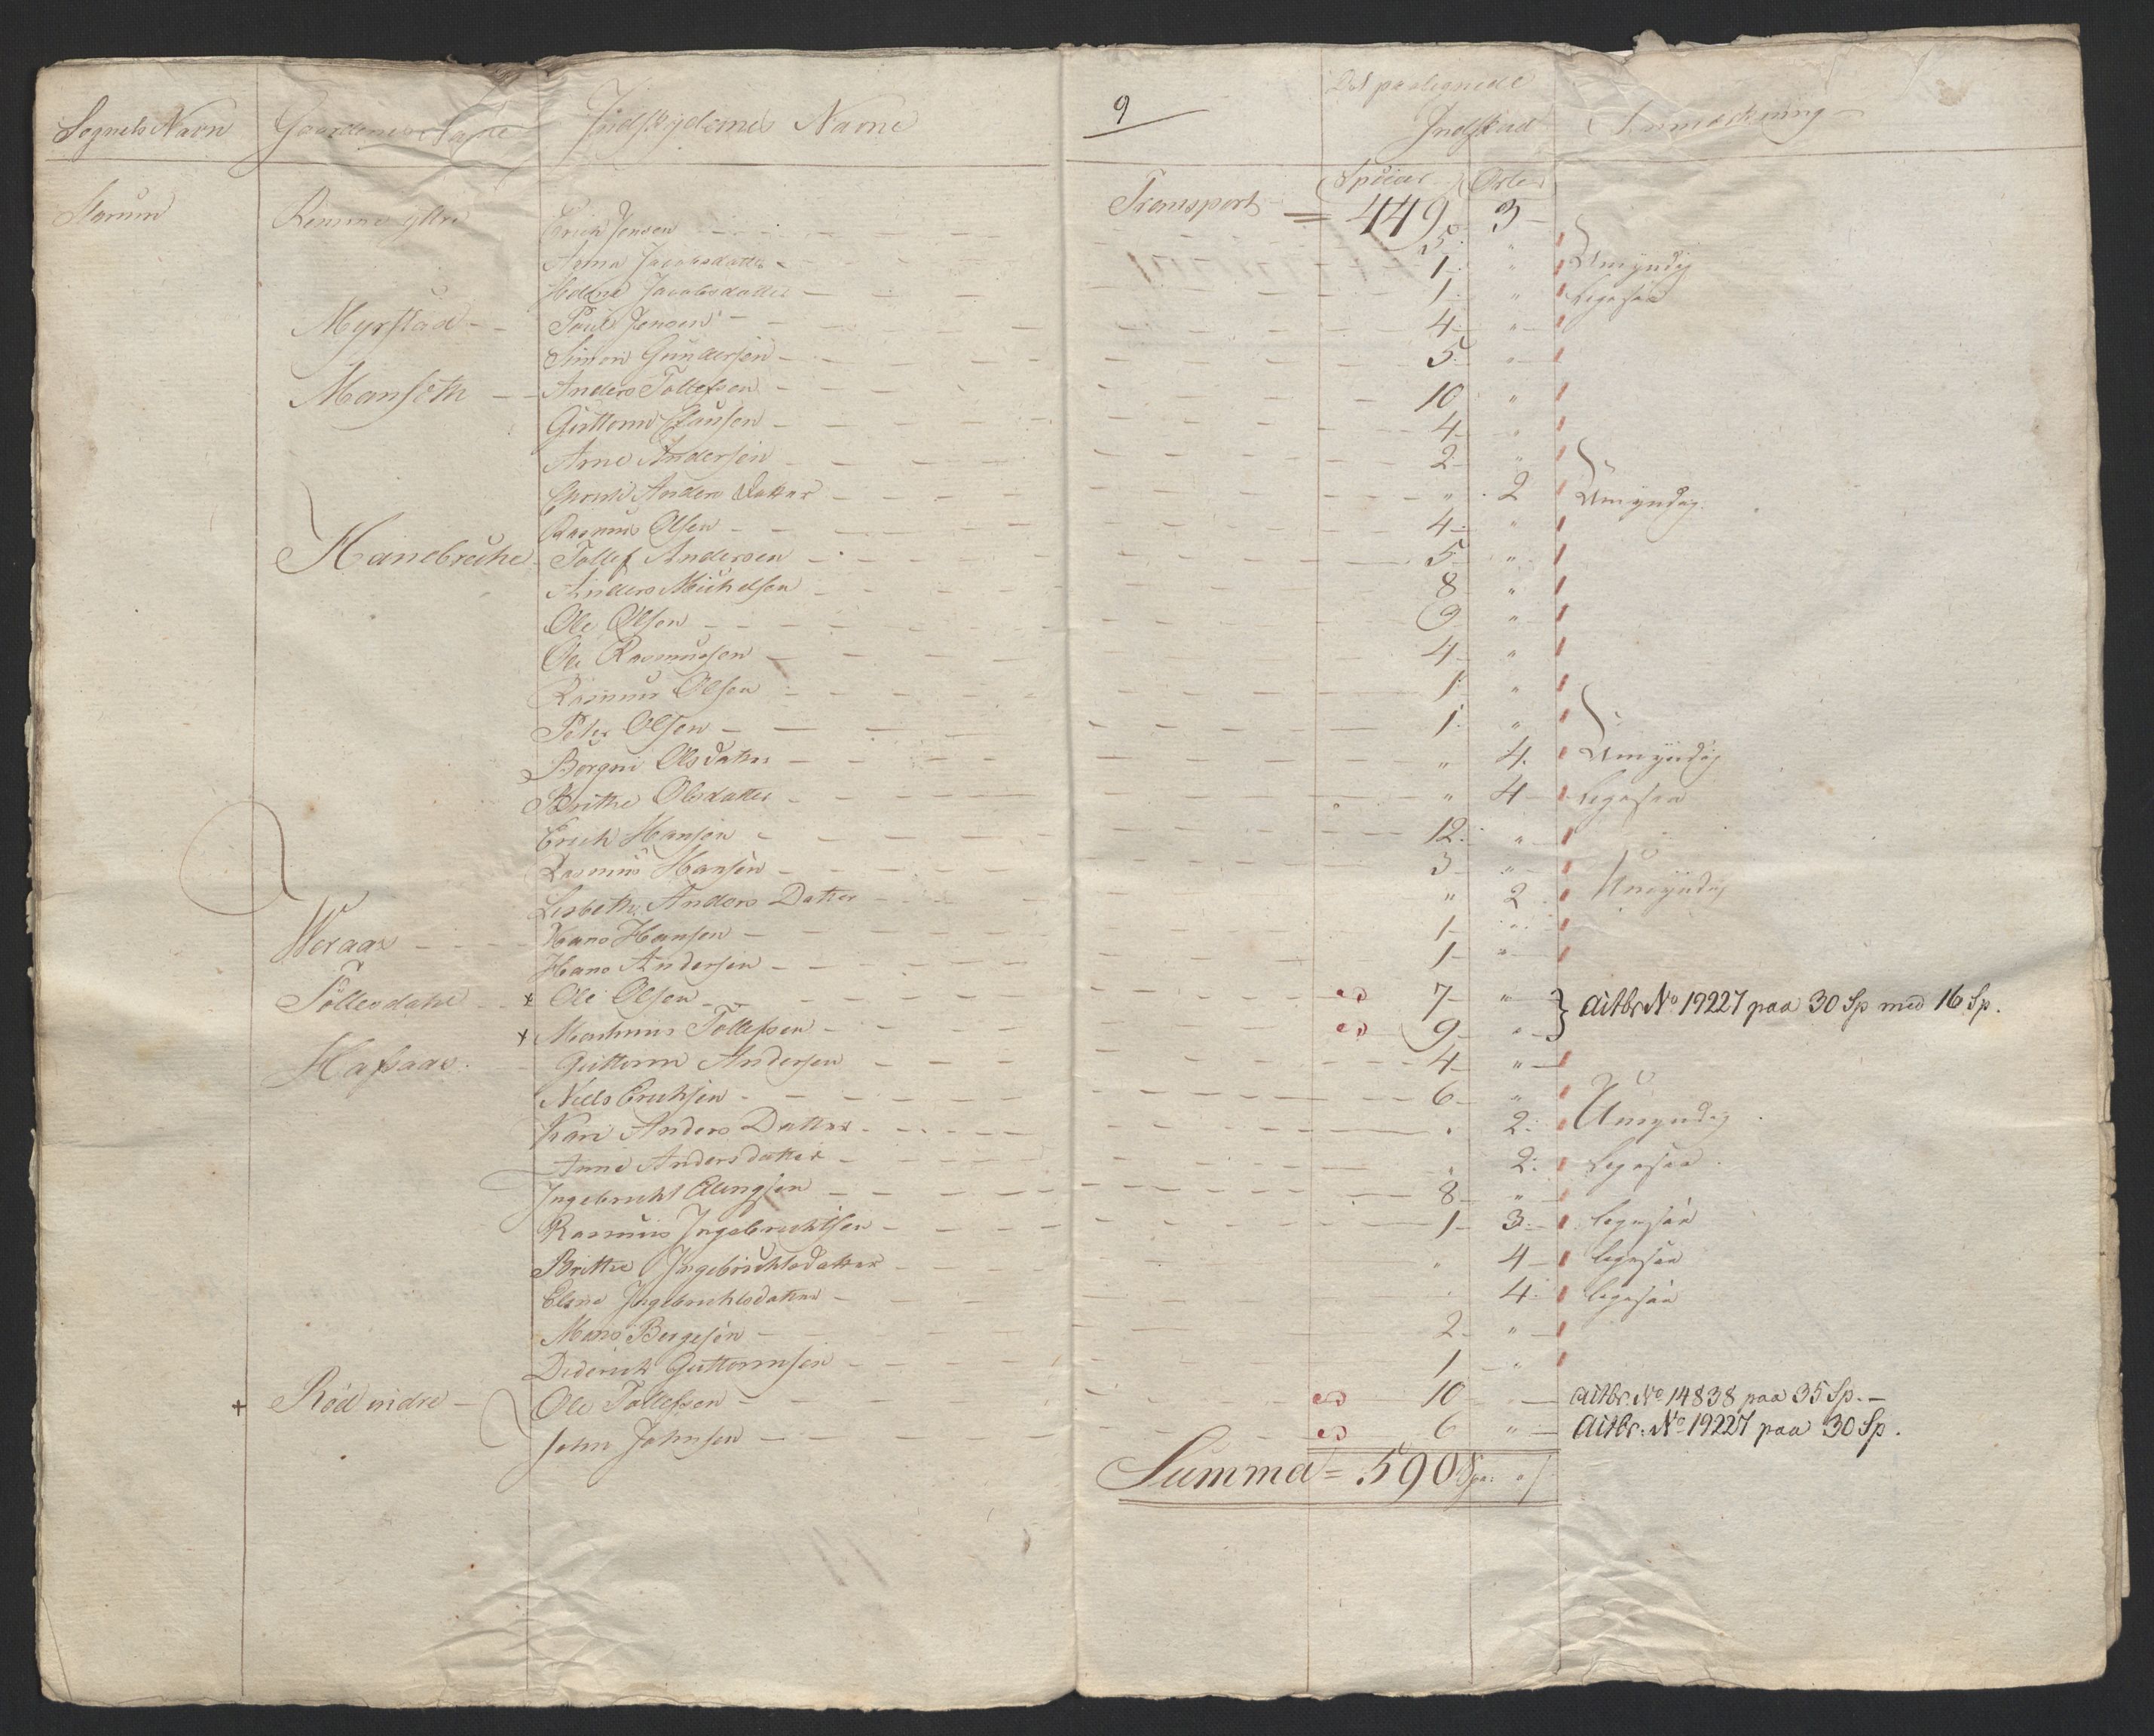 9
Sognets Navn Gaardenes Navne Indskydernes Navne Det paalignede Indskud Anmærkning
Species Orter
Transport = 449 3
Renne ytre Erich Jensen 5 "
Anna Jacobsdatter 1 " Umyndig
Helene Jacobsdatter 1 " ligesaa
Myrstad Poul Jensen 4 "
Simon Gundersen 5 "
Manseth Anders Tollefsen 10 "
Guttorm Clausen 4 "
Arne Andersen 2 "
Anders Datter " 2 Umyndig
Rasmus Olsen 4 "
Hanebrecke Tollef Andersen 5 "
Anders Michelsen 8 "
Ole Olsen 9 "
Ole Rasmussen 4 "
Rasmus Olsen 1 "
Peter Olsen 1 "
Borgni Olsdatter " 4 Umyndig
Brithe Olsdatter " 4 ligesaa
Erich Hansen 12 "
Rasmus Hansen 3 "
Lisbeth Anders Datter " 2 Umyndig
Weraas Hans Hansen 1 "
Hans Andersen 1 "
Tollesdahl x Ole Olsen 7 " } Actbr No 19227 paa 30 Sp med 16 Sp.
x Monthinus Tollefsen 9 "
Hafsaas Guttorm Andersen 4 "
Nills Erichsen 6 "
Kari Anders Datter " 2 Umyndig
Anne Andersdatter " 2 ligesaa
Ingebricht Ellingsen 8 "
Rasmus Ingebrichtsen 1 3 ligesaa
Brithe Ingebrichtsdatter " 4 ligesaa
Elene Ingebrichtsdatter 4 ligesaa
Mons Borgesen 2 "
Diderich Guttormsen 1 "
+ Röd nidre Ole Tollefsen 10 " Actbr. No 14838 paa 35 Sp.
John Johnsen 6 " Actbr. No 19227 paa 30 Sp.
Summa = 590 Spe: "